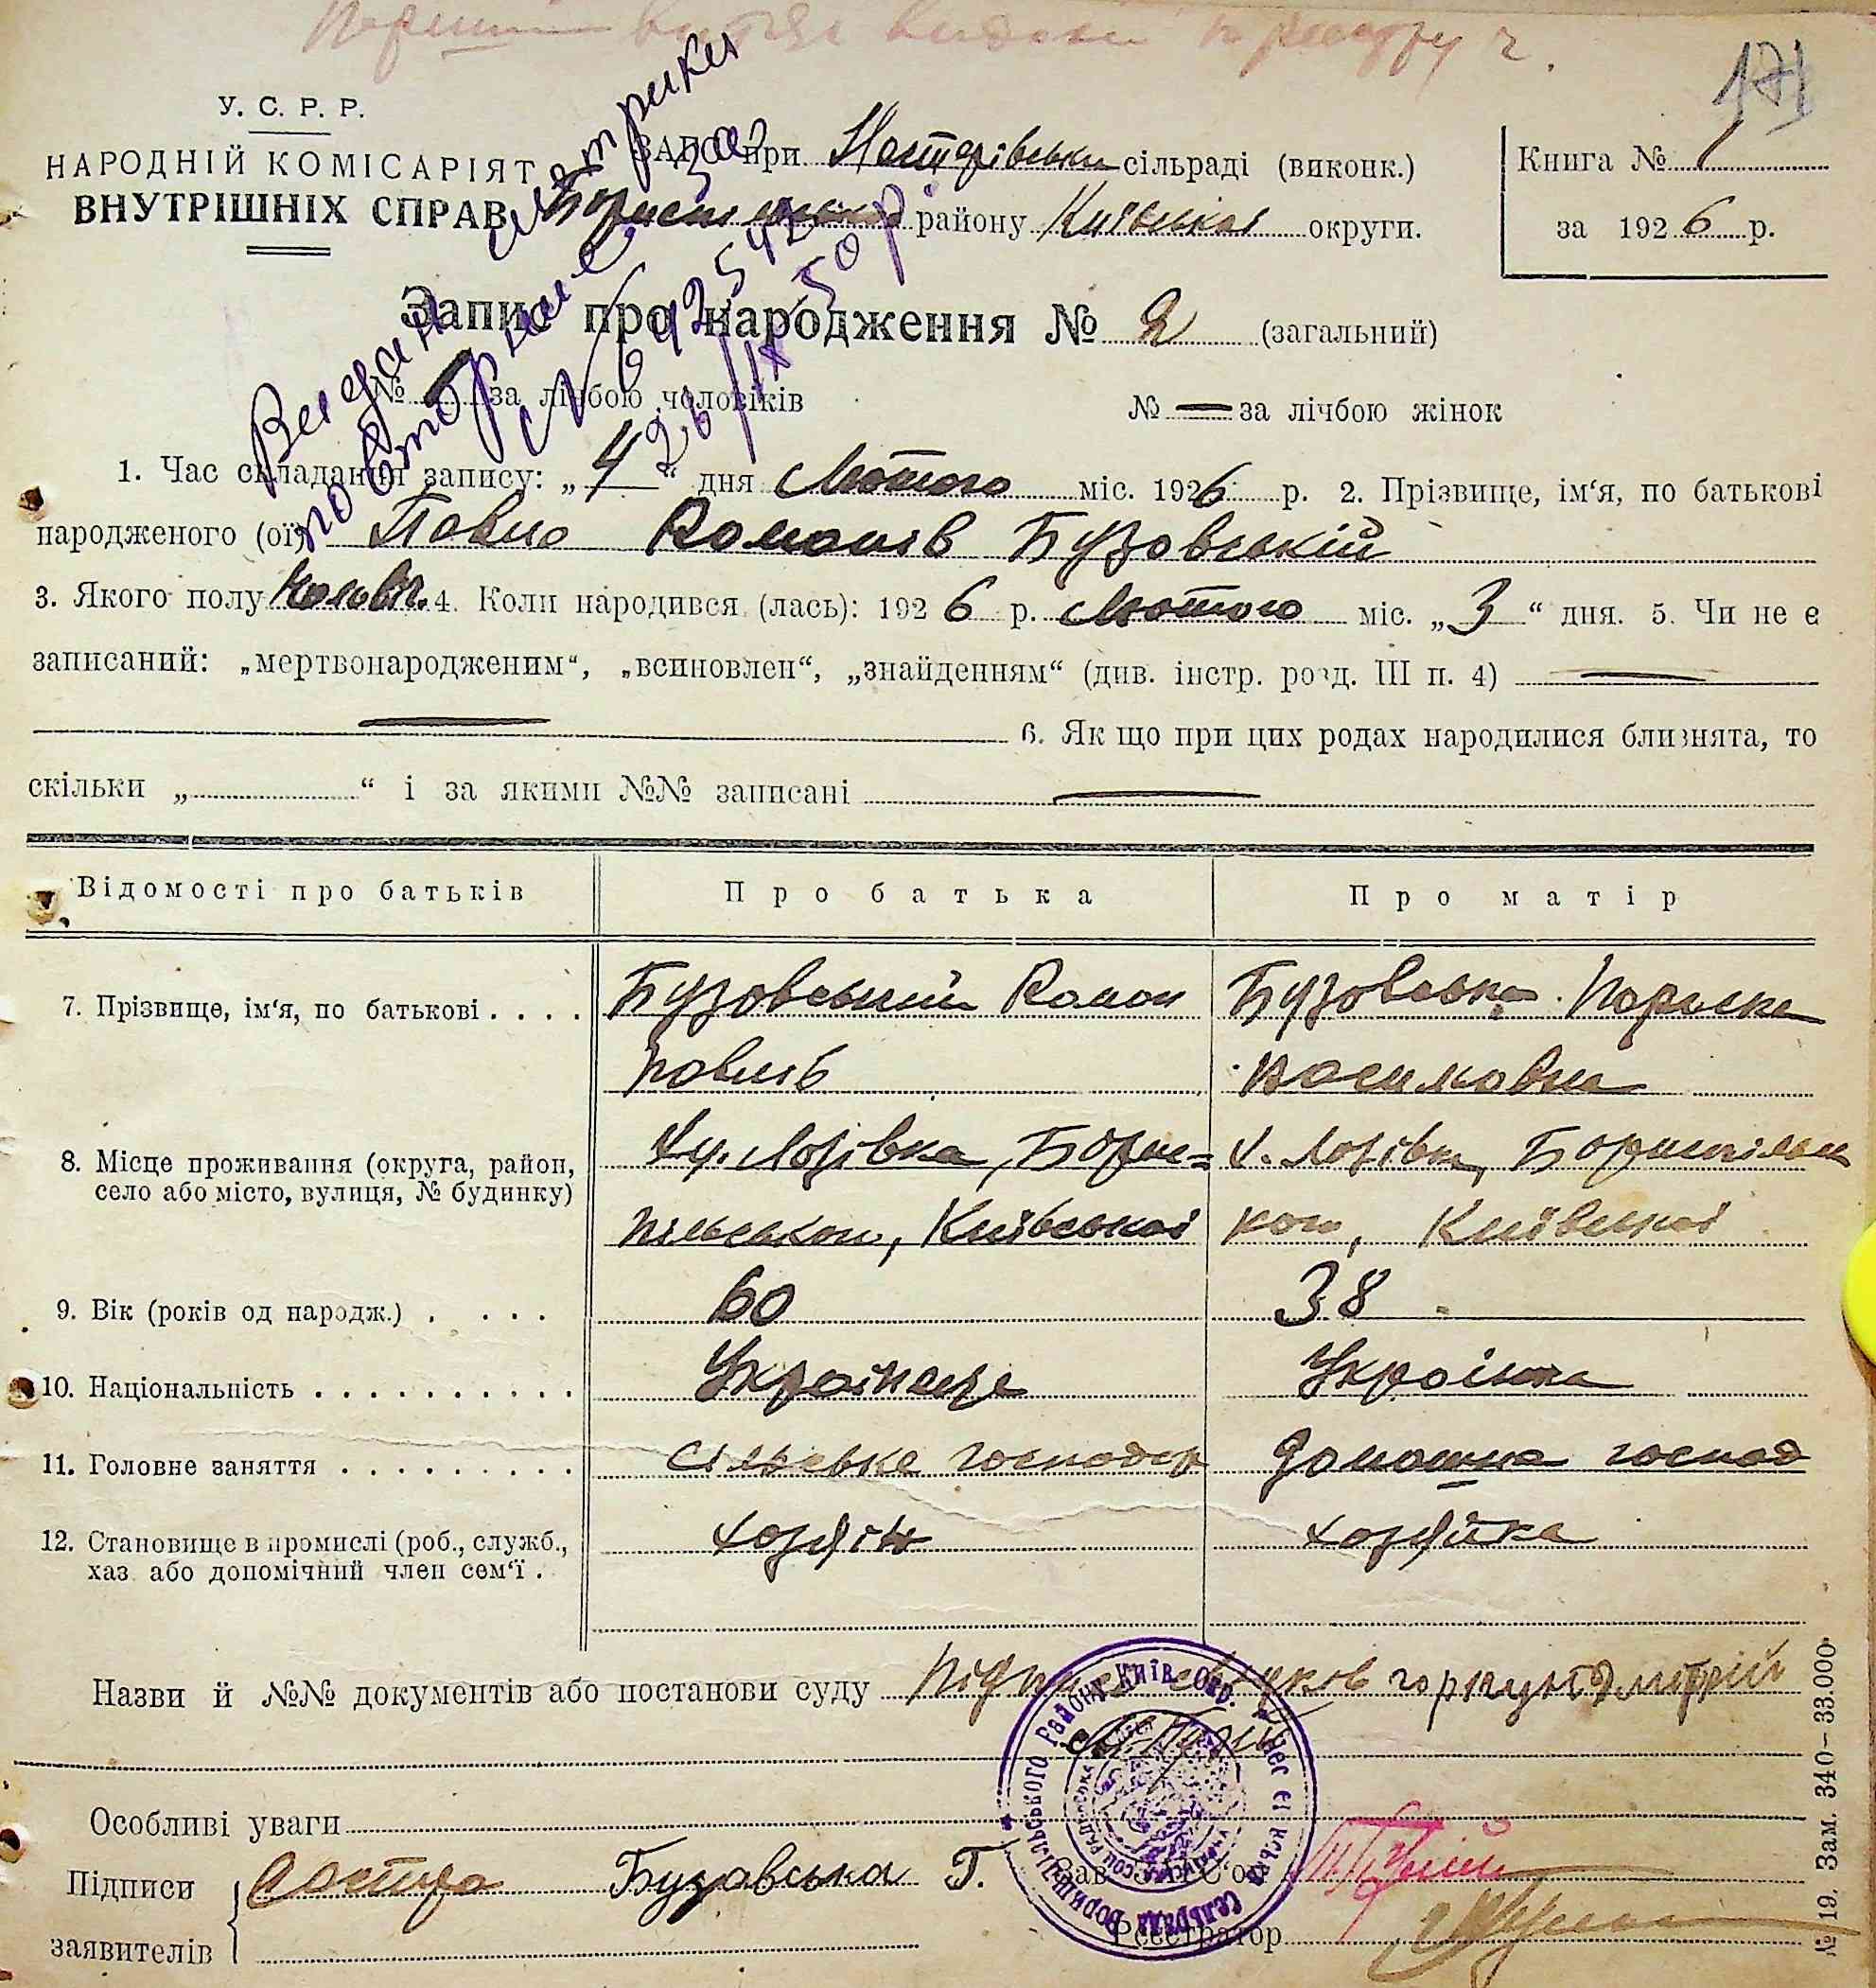 171
У. С. Р. Р.
НАРОДНІЙ КОМІСАРІЯТ
ВНУТРІШНІХ СПРАВ
ЗАГС при сільраді (виконк.)
району Київської округи.
Книга № 1
за 1926 р.
Запис про народження № 2 (загальний)
№ 1 за лічбою чоловіків
№ — за лічбою жінок
Видан
повторние
метрики
26/IX 50 р
1. Час складання запису: „4“ дня Лютого міс. 1926 р. 2. Прізвище, ім‘я, по батькові
народженого (ої) Павло Романів Бузовський
3. Якого полу 4. Коли народився (лась): 1926 р. Лютого міс. „3“ дня. 5. Чи не є
записаний: „мертвонародженим“, „всиновлен“, „знайденням“ (див. інстр. розд. III п. 4) —
— 6. Як що при цих родах народилися близнята, то
скільки „ “ і за якими №№ записані —
Відомості про батьків Про батька Про матір
7. Прізвище, ім‘я, по батькові . . . . Бузовський Роман Бузовська Параска
Павлів
8. Місце проживання (округа, район, Ху. Лозівка, Борис= Х. Лозівка,
село або місто, вулиця, № будинку)
пільськои, Київськоі кои, Київськоі
9. Вік (років од народж.) . . . . 60 38
10. Національність . . . . . . . . . . Українець Українка
11. Головне заняття . . . . . . . . . Сільське господар Домашна господ
12. Становище в промислі (роб., служб., хозяін хозяйка
хаз або допомічний член сем‘ї .
Назви й №№ документів або постанови суду Дмітрій
Особливі уваги
Підписи Состра Бузавська Г. Зав. ЗАГС‘ом
заявителів Реєстратор
№ 19. Зам. 340–33.000